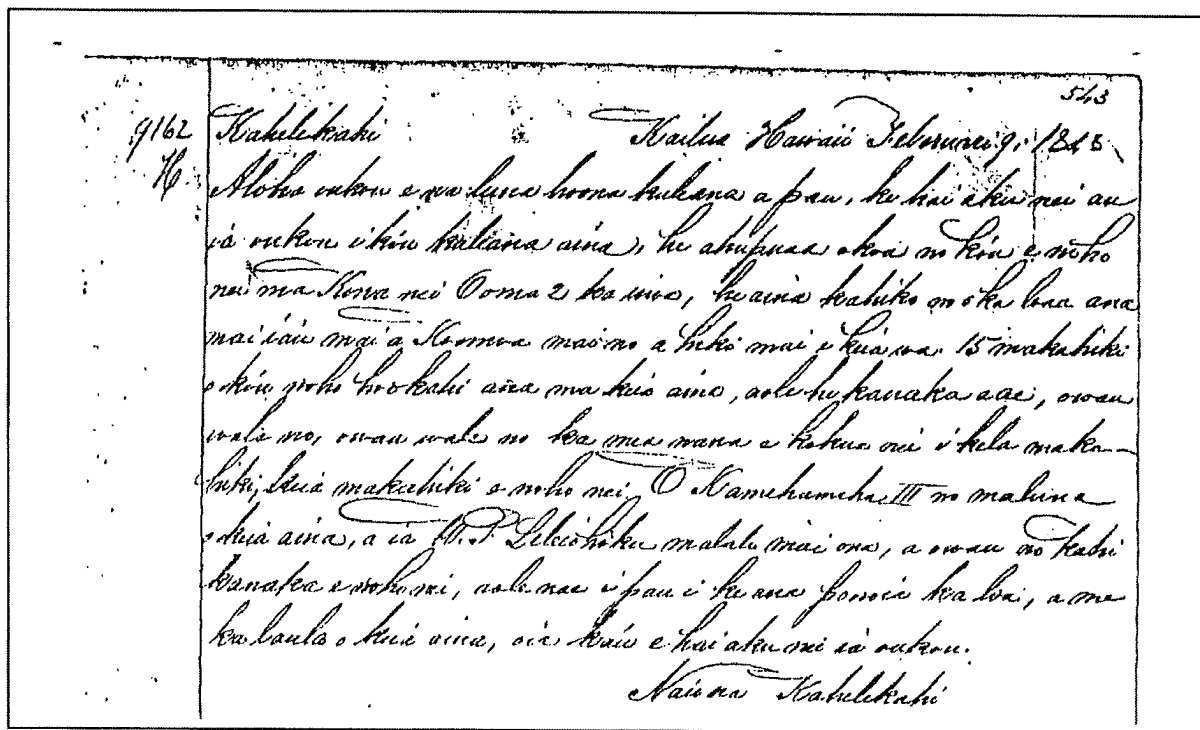 543
9162 Kahelekahi Kailua Hawaii Feberuari 9, 1848
H. Aloha oukou e na luna hoona kuleana a pau, ke hai aku nei au
ia oukou i ko'u kuleana aina, he ahupuaa okoa no ko'u e noho
nei ma Kona nei Ooma 2 ka inoa, he aina kahiko no o ka loaa ana
mai ia'u mai a Koomoa mai no a hiki mai i keia wa. 15 makahiki
o ko'u noho hookahi ana ma keia aina, aole he kanaka e ae, owau
wale no, owau wale no ka mea nana e kokua nei i kela maka-
hiki, keia makahiki e noho nei. O Kamehameha III no maluna
o keia aina, a ia W. P. Leleiohoku malalo mai ona, a owau no kahi
kanaka e noho nei, aole nae i pau i ke ana ponoia ka loa, a me
ka laula o keia aina, oia ka'u e hai aku nei ia oukou.
Na'u na Kahelekahi